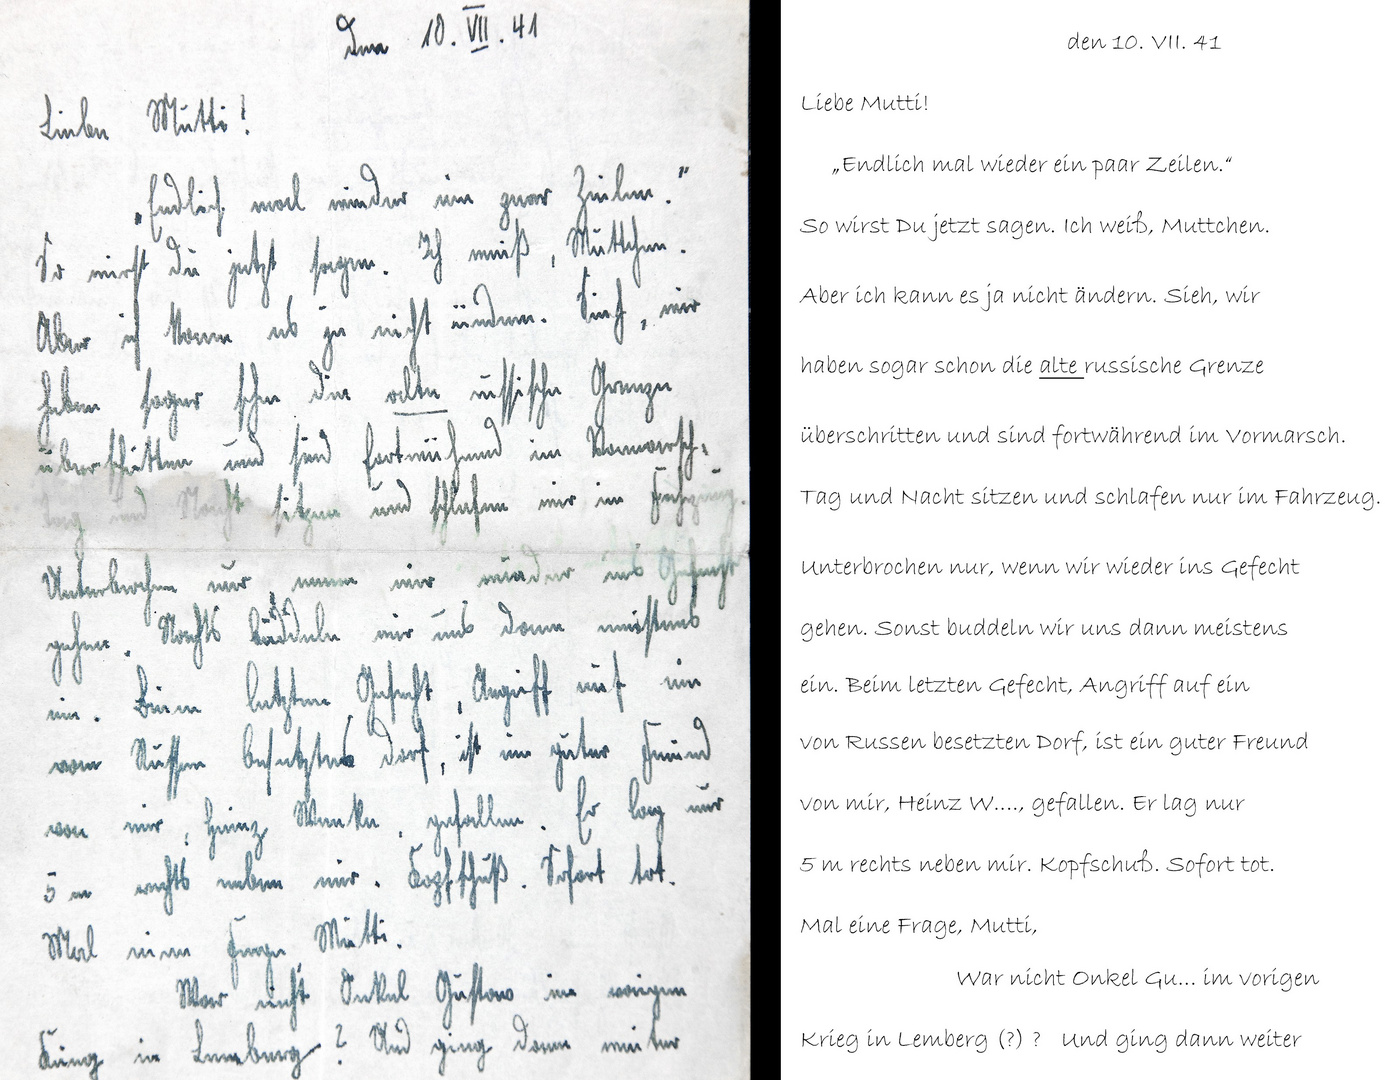 den 10. VII. 41
Liebe Mutti!
„Endlich mal wieder ein paar Zeilen.”
So wirst Du jetzt sagen. Ich weiß, Muttchen.
Aber ich kann es ja nicht ändern. Sieh, wir
haben sogar schon die alte russische Grenze
überschritten und sind fortwährend im Vormarsch.
Tag und Nacht sitzen und schlafen wir im Fahrzeug.
Unterbrochen nur, wenn wir wieder ins Gefecht
gehen. Nachts buddeln wir uns dann meistens
ein. Beim letzten Gefecht, Angriff auf ein
vom Russen besetztes Dorf, ist ein guter Freund
von mir, Heinz, gefallen. Er lag nur
5 m rechts neben mir. Kopfschuß. Sofort tot.
Mal eine Frage Mutti.
War nicht Onkel Gustav im vorigen
Krieg in Lemberg? Und ging dann weiter
den 10. VII. 41
Liebe Mutti!
„Endlich mal wieder ein paar Zeilen.“
So wirst Du jetzt sagen. Ich weiß, Muttchen.
Aber ich kann es ja nicht ändern. Sieh, wir
haben sogar schon die alte russische Grenze
überschritten und sind fortwährend im Vormarsch.
Tag und Nacht sitzen und schlafen nur im Fahrzeug.
Unterbrochen nur, wenn wir wieder ins Gefecht
gehen. Sonst buddeln wir uns dann meistens
ein. Beim letzten Gefecht, Angriff auf ein
von Russen besetzten Dorf, ist ein guter Freund
von mir, Heinz W...., gefallen. Er lag nur
5 m rechts neben mir. Kopfschuß. Sofort tot.
Mal eine Frage, Mutti,
War nicht Onkel Gu... im vorigen
Krieg in Lemberg (?) ? Und ging dann weiter